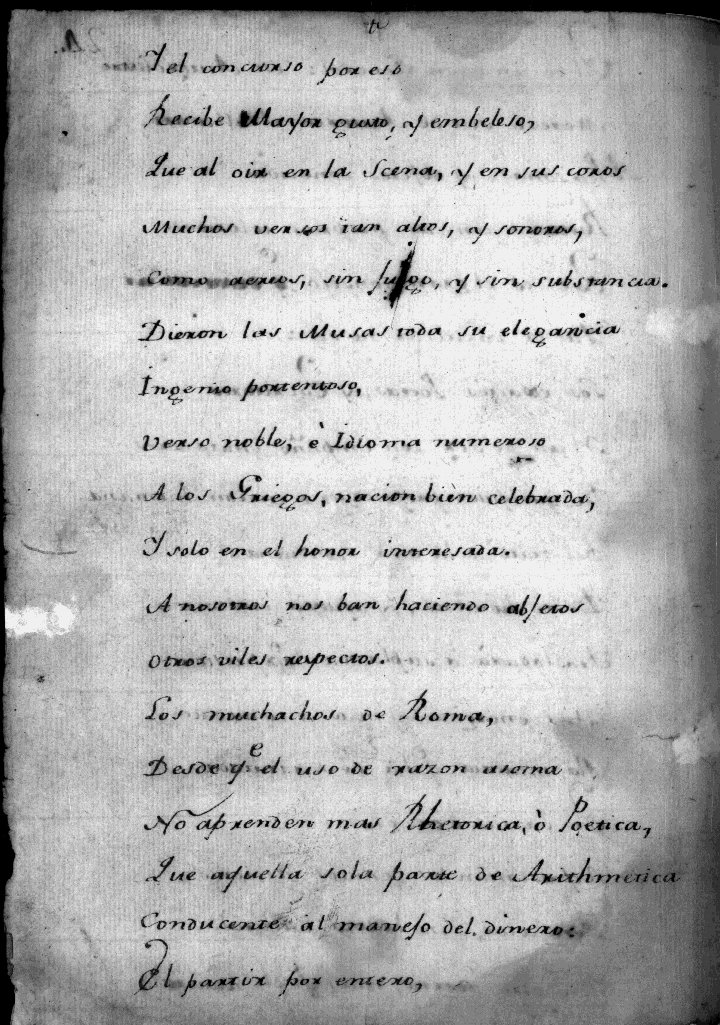 Y el concurso por eso
Recibe Mayor gusto, y embeleso,
Que al oir en la Scena, y en sus coros
Muchos versos tan altos, y sonoros,
Como aereos, sin jugo, y sin substancia.
Dieron las Musas toda su elegancia
Ingenio portentoso,
Verso noble, è Idioma numeroso
A los Griegos, nacion bien celebrada,
Y solo en el honor interesada.
A nosotros nos ban haciendo abjetos
Otros viles respectos.
Los muchachos de Roma,
Desde qe el uso de razon asoma
No aprenden mas Rhetorica, ò Poetica,
Que aquella sola parte de Arithmetica
Conducente al manejo del dinero:
El partir por entero,